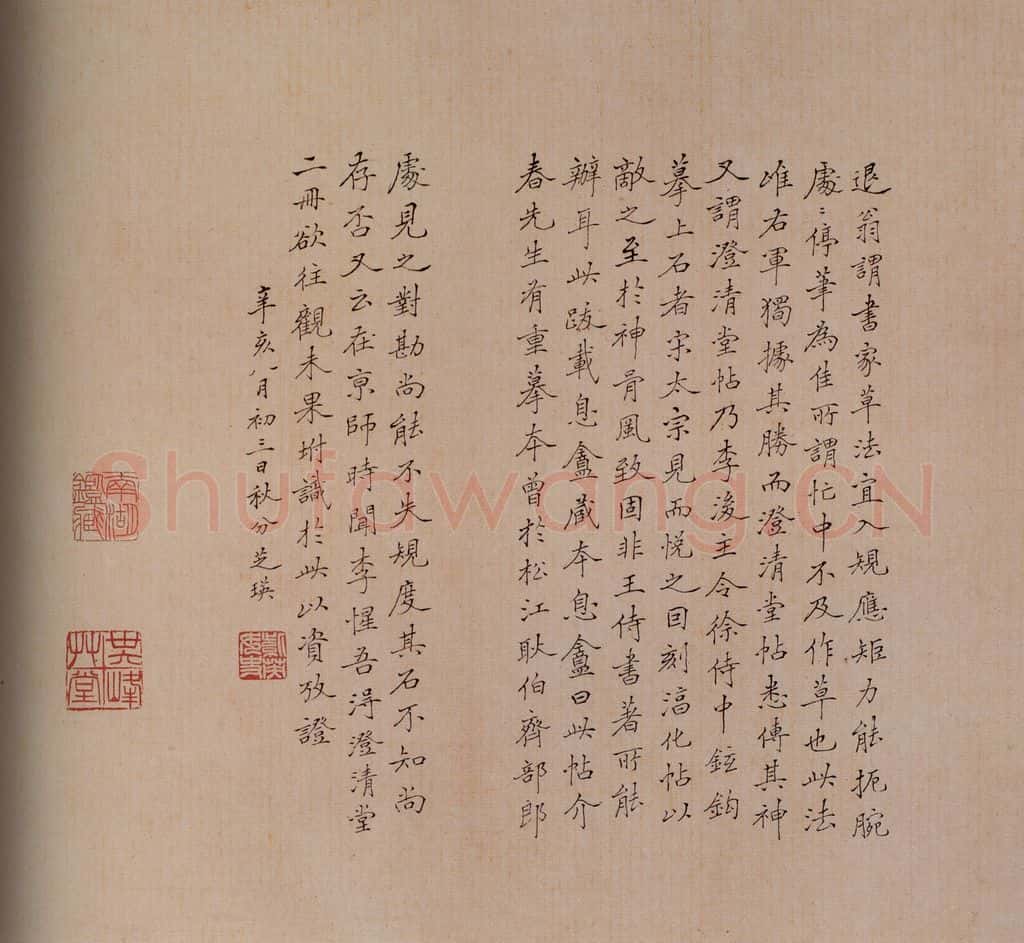 退翁謂書家草法宜入規應矩力能扼腕
處〻停筆為佳所謂忙中不及作草也此法
唯右軍獨據其勝而澄清堂帖悉傳其神
又謂澄清堂帖乃李後主令徐侍中鉉鈎
摹上石者宋太宗見而悅之回刻淳化帖以
敵之至於神骨風致固非王侍書著所能
辦耳此跋載息盦藏本息盦曰此帖介
春先生有重摹本曾於松江耿伯齊部郎
處見之對勘尚能不失規度其石不知尚
存否又云在京師時聞李惺吾得澄清堂
二冊欲往觀未果坿識於此以資攷證
辛亥八月初三日秋分芝瑛
南湖鑑藏
Shufawang.CN